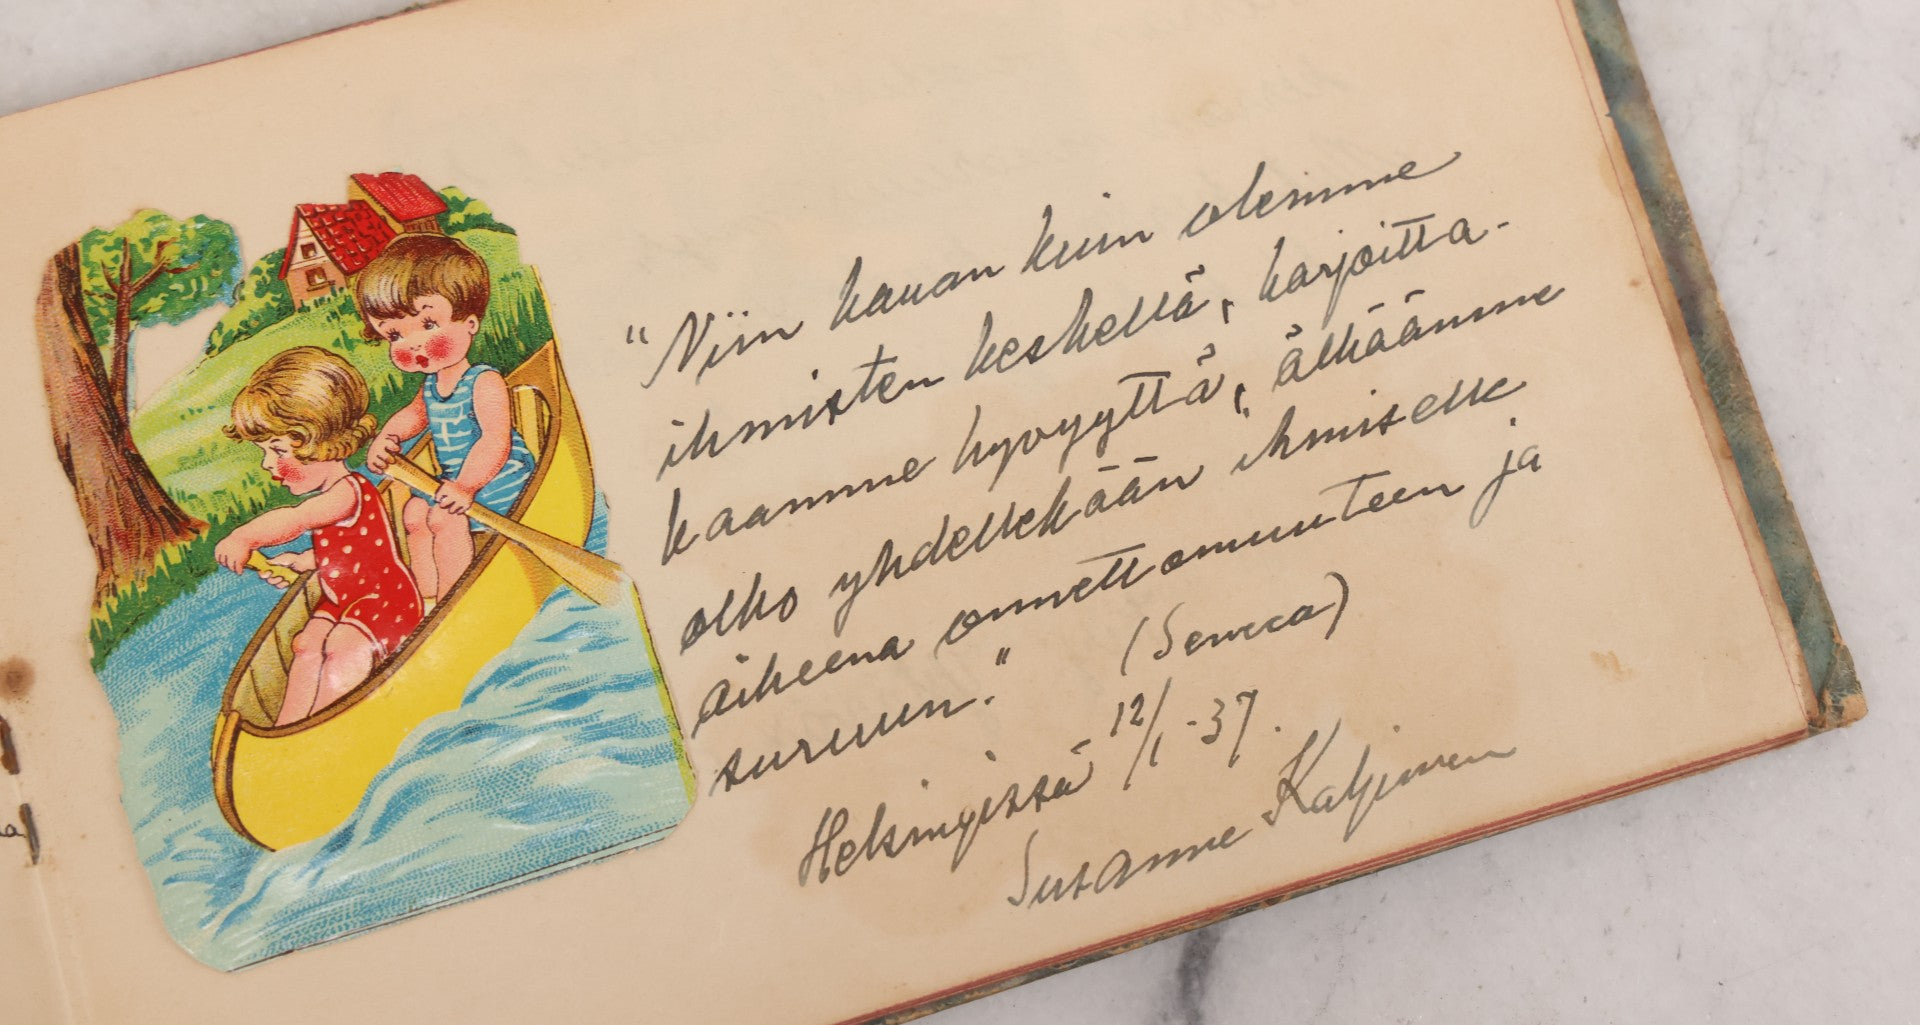 "Niin kauan kuin olemme
ihmisten keskellä, harjoitta-
kaamme hyvyyttä, älkäämme
olko yhdellekään ihmiselle
aiheena onnettomuuteen ja
suruun." (Seneca)
Helsingissä 12/1 -37.
Susanne Kaljunen
a